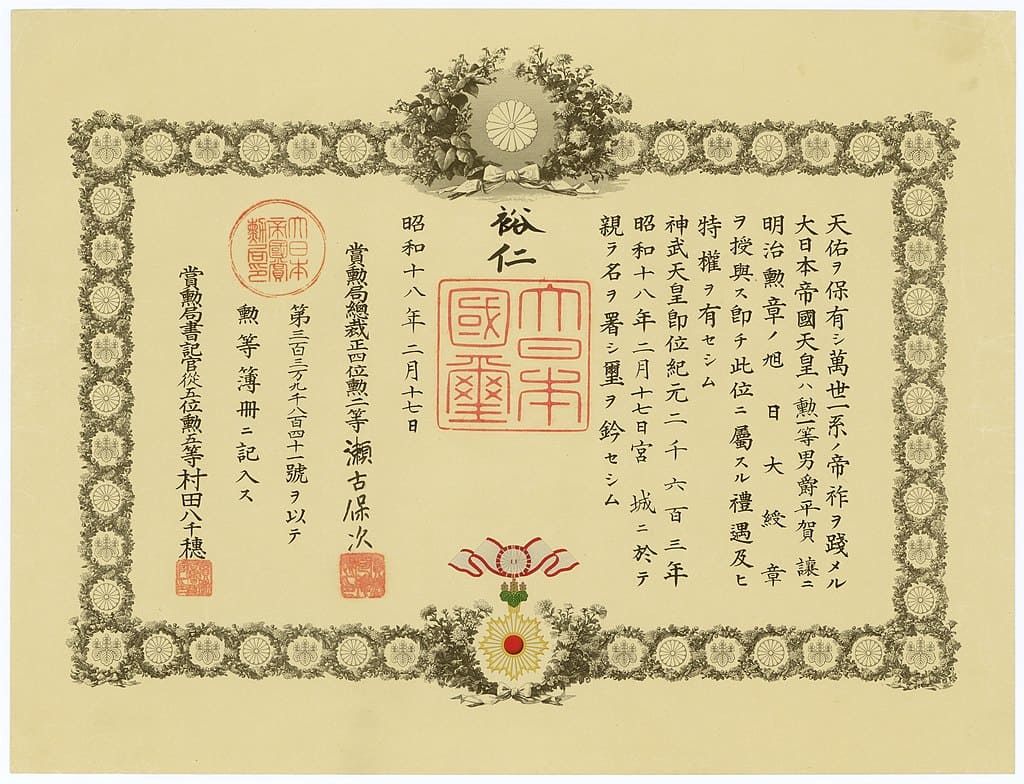 天佑ヲ保有シ萬世一系ノ帝祚ヲ踐メル
大日本帝國天皇ハ勲一等男爵平賀讓ニ
明治勲章ノ旭日大綬章
ヲ授與ス即チ此位ニ屬スル禮遇及ヒ
特權ヲ有セシム
神武天皇即位紀元二千六百三年
昭和十八年二月十七日宮城ニ於テ
親ラ名ヲ署シ璽ヲ鈐セシム
裕仁
大日本
國璽
昭和十八年二月十七日
賞勲局總裁正四位勲二等瀬古保次
大日本
帝國賞
勲局印
第三百三万九千八百四十一號ヲ以テ
勲等簿冊ニ記入ス
賞勲局書記官從五位勲五等村田八千穗